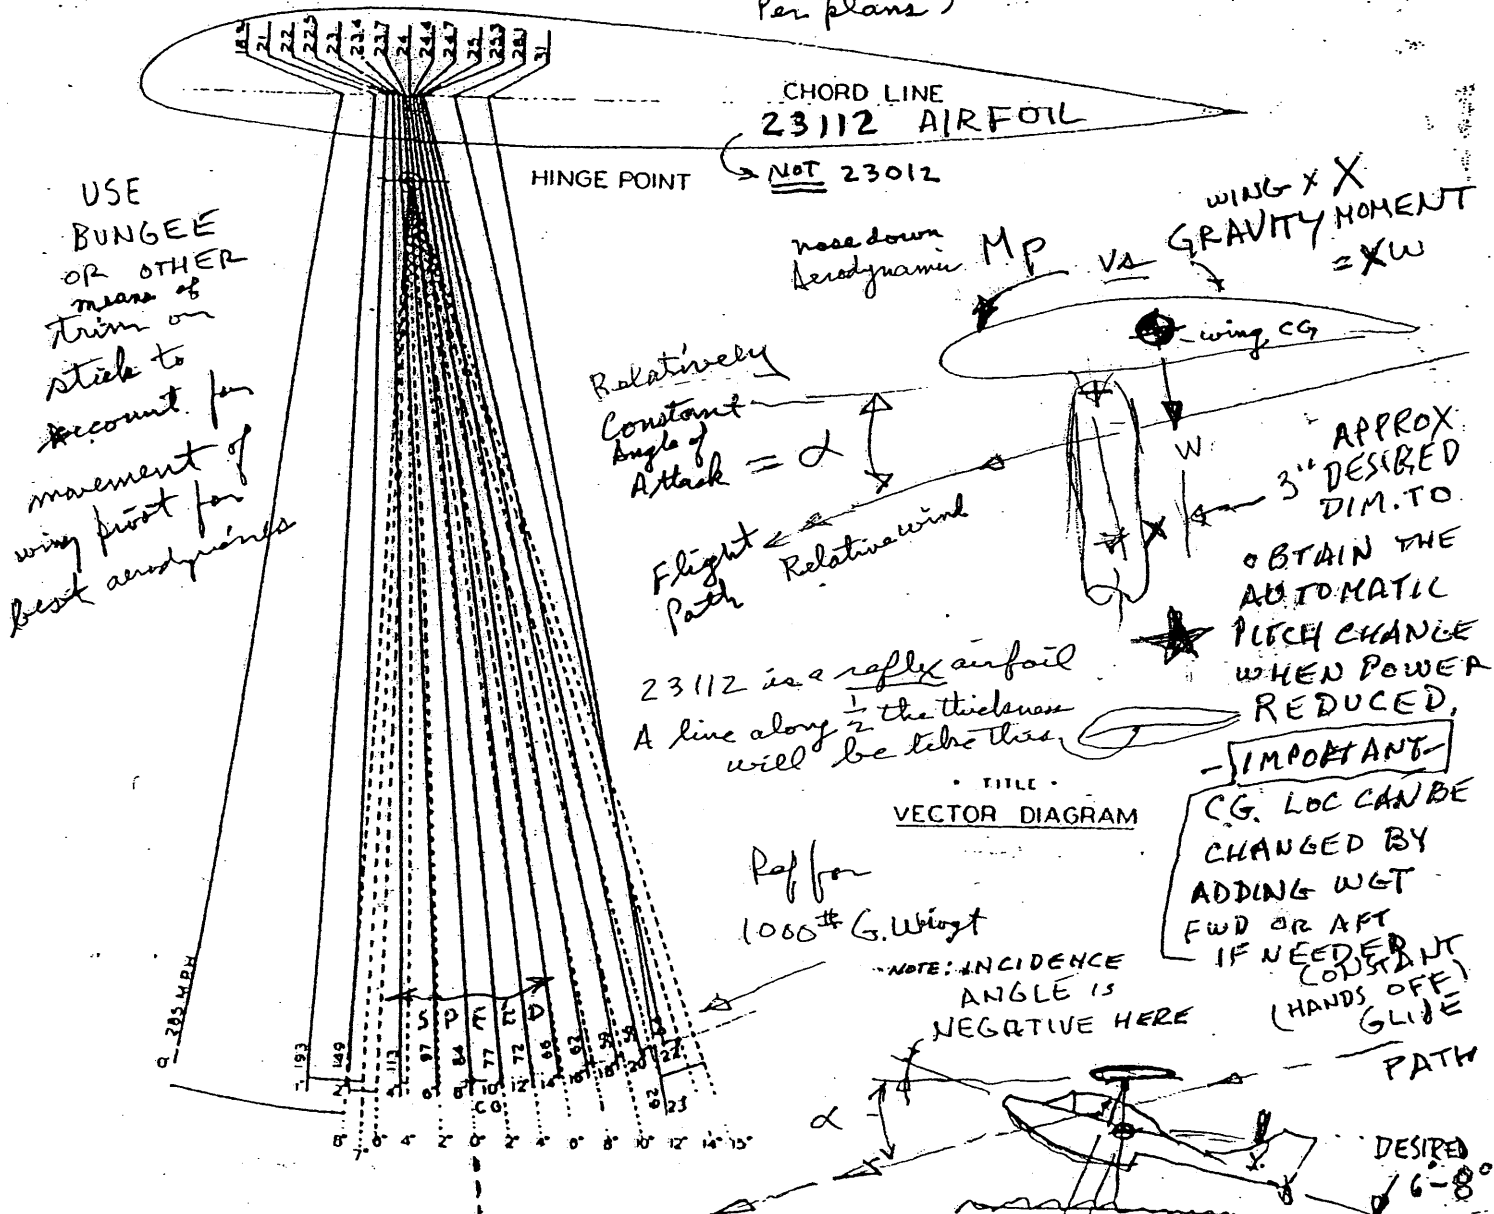 Per plans)
18.2 21 22 22.5 23 23.4 23.7 24 24.4 24.7 25 25.3 28.1 31
CHORD LINE
23112 AIRFOIL
NOT 23012
HINGE POINT
USE
BUNGEE
OR OTHER
means of
trim on
stick to
account for
movement of
wing pivot for
best aerodynamics
nose down
Aerodynamic Mp
VS
WING X X
GRAVITY MOMENT
= XW
wing CG
W
X
Relatively
Constant
Angle of
Attack = α
Flight
Path
Relative wind
APPROX
3" DESIRED
DIM. TO
OBTAIN THE
AUTOMATIC
PITCH CHANGE
WHEN POWER
REDUCED.
23112 is a reflex airfoil
A line along 1/2 the thickness
will be like this
• TITLE •
VECTOR DIAGRAM
-IMPORTANT-
C.G. LOC CAN BE
CHANGED BY
ADDING WGT
FWD OR AFT
IF NEEDED
Ref for
1000# G. Weight
NOTE: INCIDENCE
ANGLE IS
NEGATIVE HERE
CONSTANT
(HANDS OFF)
GLIDE
PATH
α
DESIRED
6°-8°
285 MPH
SPEED
193 149 113 97 84 77 72 66 62 59
2° 4° 6° 8° 10° 12° 14° 16° 18° 20° 22°
62 23
CG
8° 7° 6° 4° 2° 0° 2° 4° 6° 8° 10° 12° 14° 15°